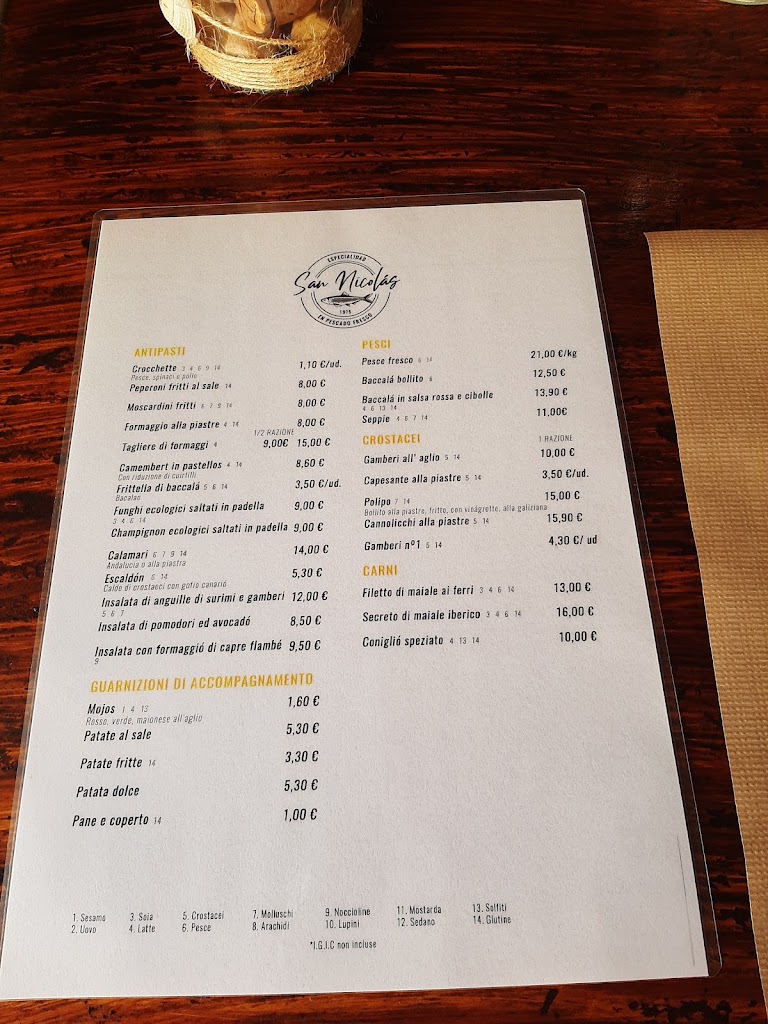 ESPECIALIDAD
San Nicolás
1975
EN PESCADO FRESCO
ANTIPASTI
Crocchette 3 4 6 9 14 1,10 €/ud.
Pesce, spinaci e pollo
Peperoni fritti al sale 14 8,00 €
Moscardini fritti 6 7 9 14 8,00 €
Formaggio alla piastre 4 14 8,00 €
1/2 RAZIONE
Tagliere di formaggi 4 9,00€ 15,00 €
Camembert in pastellos 4 14 8,60 €
Con riduzione di cuirtilli
Frittella di baccalá 5 6 14 3,50 €/ud.
Bacalao
Funghi ecologici saltati in padella 9,00 €
3 4 6 14
Champignon ecologici saltati in padella 9,00 €
Calamari 6 7 9 14 14,00 €
Andalucia o alla piastra
Escaldón 6 14 5,30 €
Caldo di crostacei con gofio canarió
Insalata di anguille di surimi e gamberi 12,00 €
5 6 7
Insalata di pomodori ed avocadó 8,50 €
Insalata con formaggió di capre flambé 9,50 €
9
GUARNIZIONI DI ACCOMPAGNAMENTO
Mojos 1 4 13 1,60 €
Rosso, verde, maionese all'aglio
Patate al sale 5,30 €
Patate fritte 14 3,30 €
Patata dolce 5,30 €
Pane e coperto 14 1,00 €
PESCI
Pesce fresco 6 14 21,00 €/kg
Baccalá bollito 6 12,50 €
Baccalá in salsa rossa e cibolle 13,90 €
4 6 13 14
Seppie 4 6 7 14 11,00€
CROSTACEI 1 RAZIONE
Gamberi all' aglio 5 14 10,00 €
Capesante alla piastre 5 14 3,50 €/ud.
Polipo 7 14 15,00 €
Bollito alla piastre, fritto, con vinágrette, alla galiziana
Cannolicchi alla piastre 5 14 15,90 €
Gamberi nº1 5 14 4,30 €/ ud
CARNI
Filetto di maiale ai ferri 3 4 6 14 13,00 €
Secreto di maiale iberico 3 4 6 14 16,00 €
Conigliό speziato 4 13 14 10,00 €
1. Sesamo 3. Soia 5. Crostacei 7. Molluschi 9. Noccioline 11. Mostarda 13. Solfiti
2. Uovo 4. Latte 6. Pesce 8. Arachidi 10. Lupini 12. Sedano 14. Glutine
*I.G.I.C non incluse